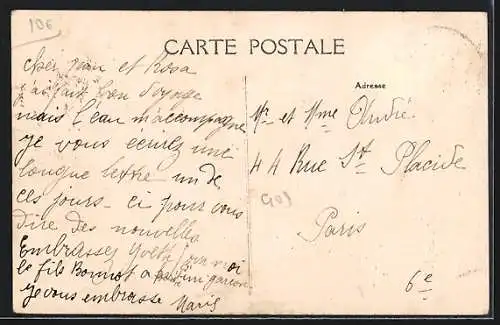 10E
CARTE POSTALE
cher Jean et Rosa
j'ai fait bon voyage
mais l'eau m'accompagne
je vous ecirez une
longue lettre un de
ces jours - ci pour vous
dire des nouvelles
Embrassez Yvette pour moi
le fils Bonnot a petit garcon
Je vous embrasse Maris
Adresse
Mr et Mme André
44 Rue St Placide
Paris
6e